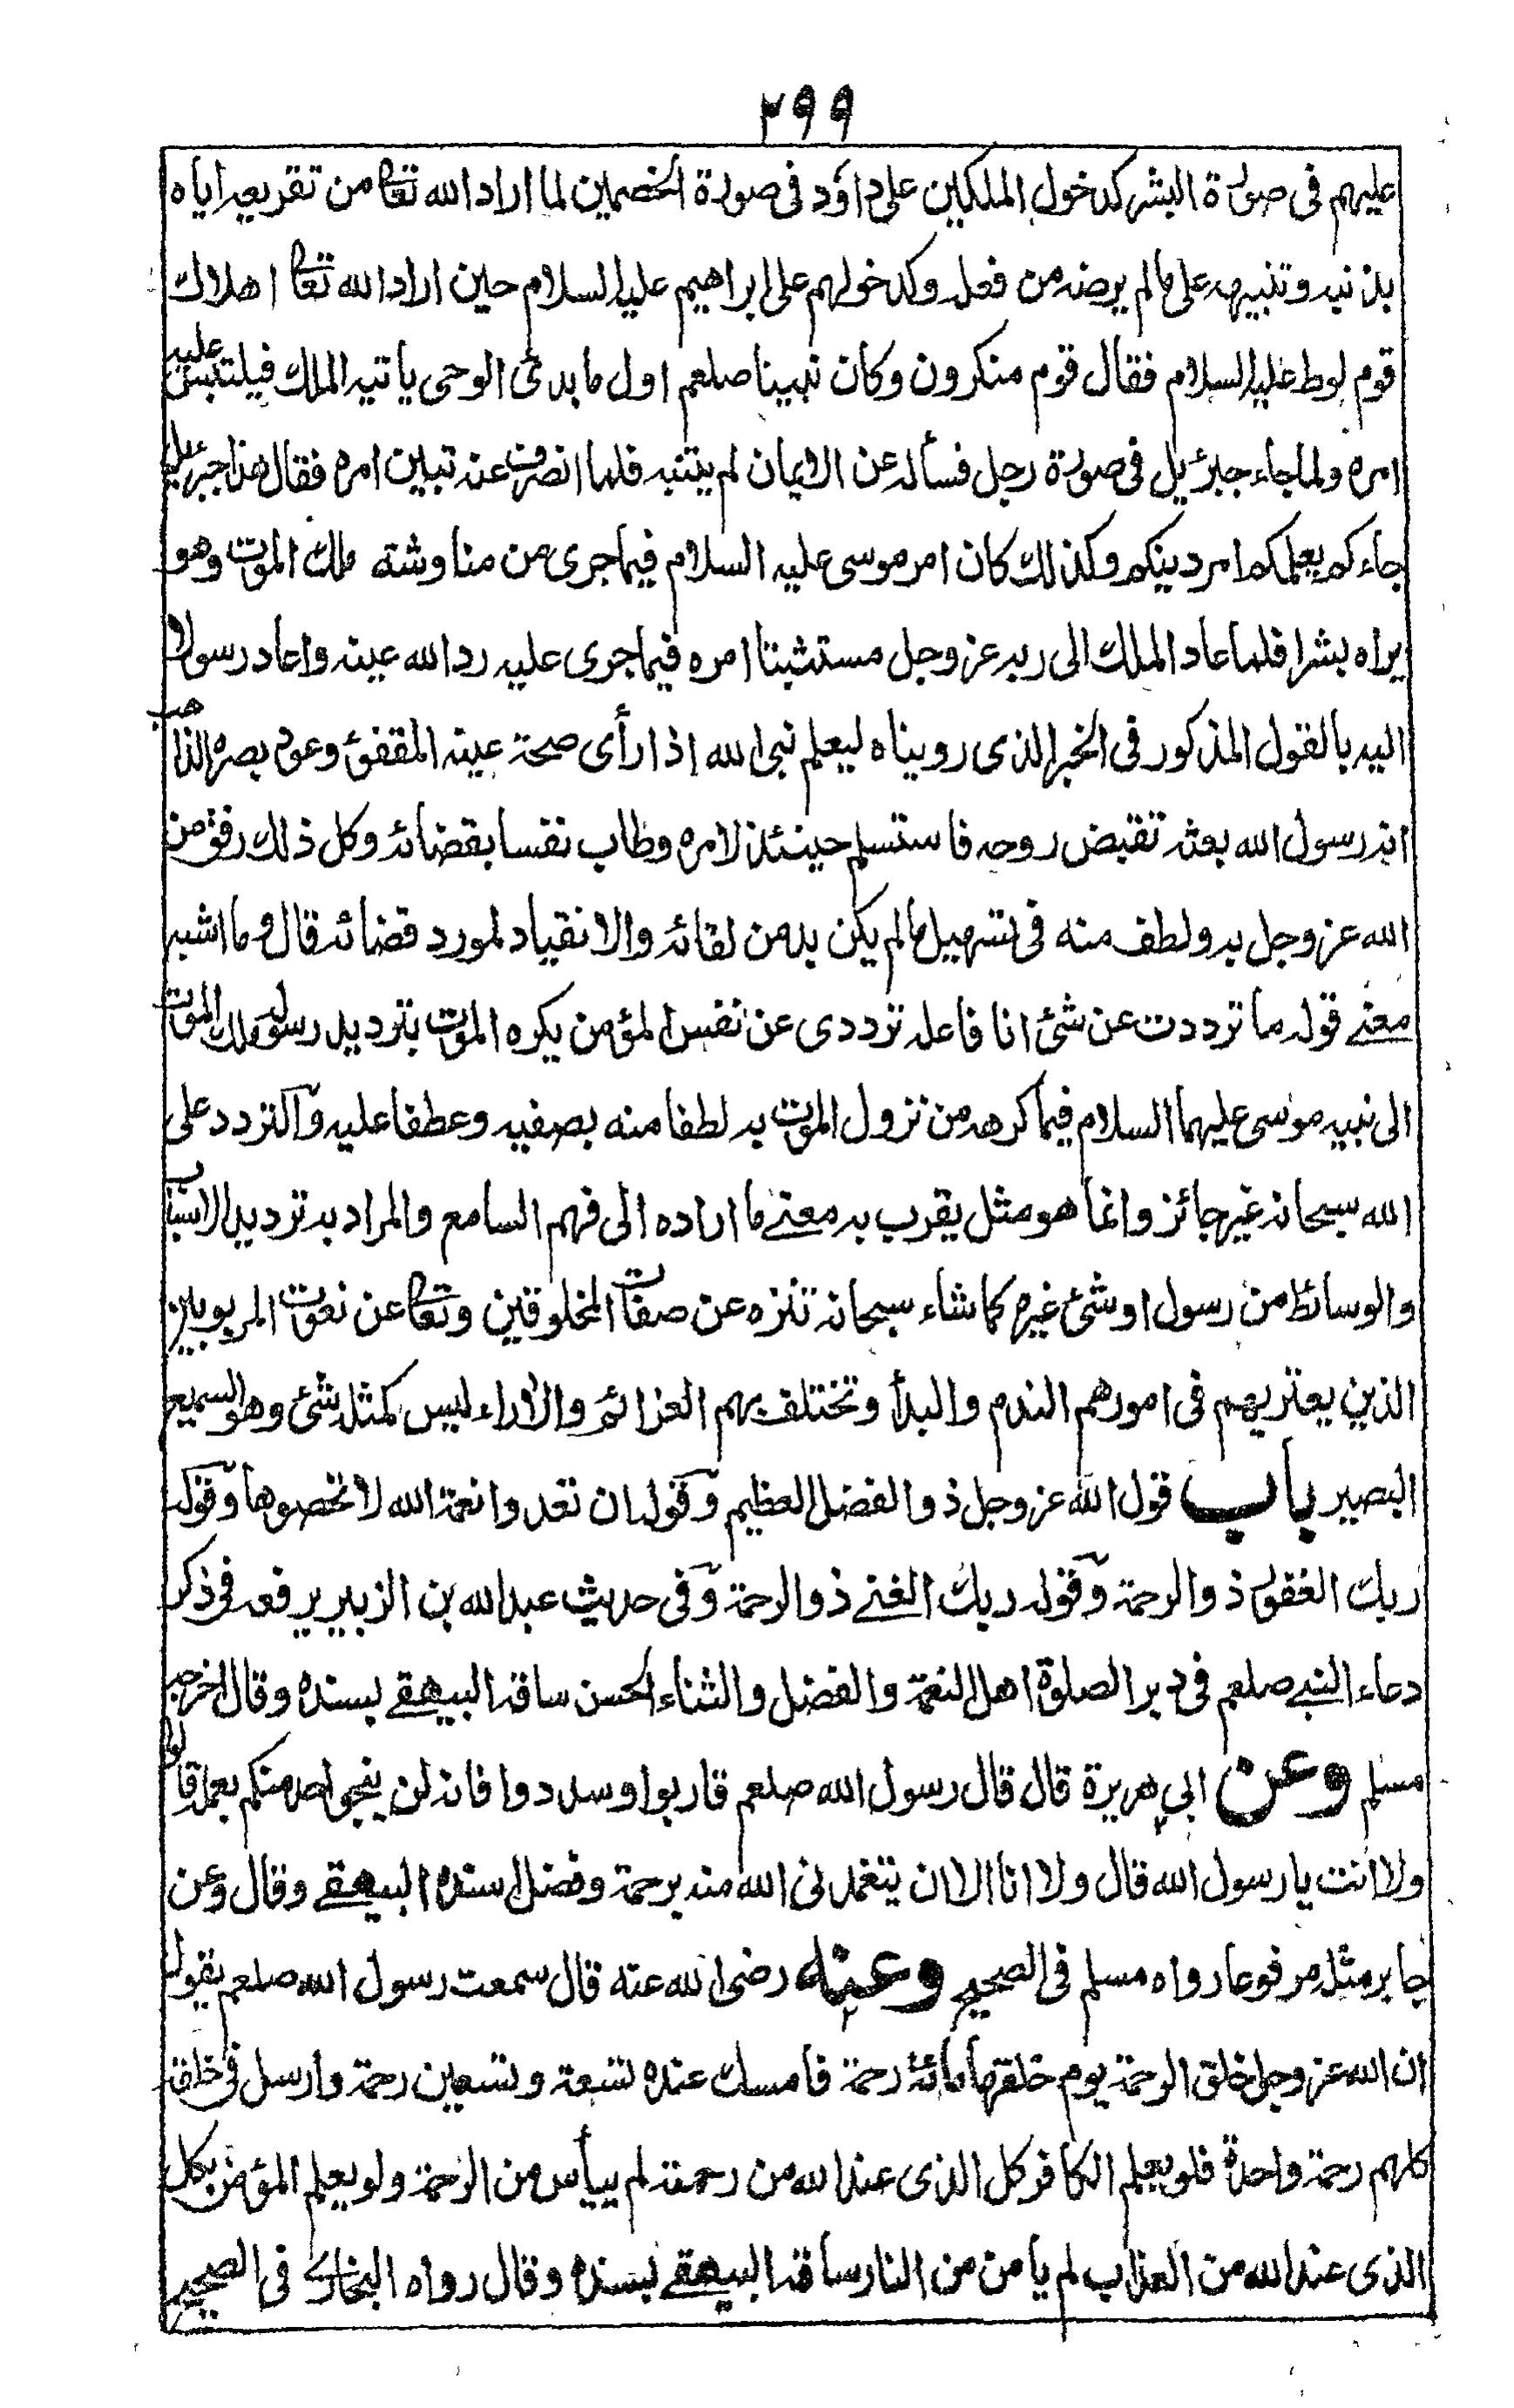 ٢٩٩
عليهم فى صورة البشر كدخول الملكين على داؤد فى صورة الخصمين لما اراد الله تعا من تقريعه اياه
بذنبه وتنبيهه على ما لم يرضه من فعله وكدخولهم على ابراهيم عليه السلام حين اراد الله تعا اهلاك
قوم لوط عليه السلام فقال قوم منكرون وكان نبينا صلعم اول ما بدئ الوحى ياتيه الملك فيلتبس عليه
امره ولما جاء جبرئيل فى صورة رجل فسأله عن الايمان لم يتنبه فلما انصرف عنه تبين امره فقال هذا جبرئيل
جاءكم يعلمكم امر دينكم وكذلك كان امر موسى عليه السلام فيما جرى من مناوشته ملك الموت وهو
يراه بشرا فلما عاد الملك الى ربه عز وجل مستثبتا امره فيما جرى عليه رد الله عينه واعاد رسولا
اليه بالقول المذكور فى الخبر الذى رويناه ليعلم نبى الله اذا رأى صحة عينه المقفئ وعود بصره الذاهب
انه رسول الله بعثه تقبض روحه فاستسلم حينئذ لامره وطاب نفسا بقضائه وكل ذلك رفق من
الله عز وجل به ولطف منه فى تسهيل ما لم يكن بد من لقائه والانقياد لمورد قضائه قال وما اشبه
معنى قوله ما ترددت عن شئ انا فاعله ترددى عن نفس المؤمن يكره الموت بترديد رسوله ملك الموت
الى نبيه موسى عليهما السلام فيما كرهه من نزول الموت به لطفا منه بصفيه وعطفا عليه والتردد على
الله سبحانه غير جائز وانما هو مثل يقرب به معنى ما اراده الى فهم السامع والمراد به ترديد الاسباب
والوسائط من رسول او شئ غيره كما شاء سبحانه تنزه عن صفات المخلوقين وتعا عن نعوت المربوبين
الذين يعتريهم فى امورهم الندم والبدأ وتختلف بهم العزائم والاراء ليس كمثله شئ وهو السميع
البصير باب قول الله عز وجل ذو الفضل العظيم وقوله ان تعدوا نعمة الله لا تحصوها وقوله
ربك الغفور ذو الرحمة وقوله ربك الغنى ذو الرحمة وفى حديث عبد الله بن الزبير يرفعه فى ذكر
دعاء النبى صلعم فى دبر الصلوة اهل النعمة والفضل والثناء الحسن ساقه البيهقى بسنده وقال اخرجه
مسلم وعن ابى هريرة قال قال رسول الله صلعم قاربوا وسددوا فانه لن ينجى احد منكم بعمله قالوا
ولا انت يا رسول الله قال ولا انا الا ان يتغمدنى الله منه برحمة وفضل اسنده البيهقى وقال وعن
جابر مثله مرفوعا رواه مسلم فى الصحيح وعنه رضى الله عنه قال سمعت رسول الله صلعم يقول
ان الله عز وجل خلق الرحمة يوم خلقها مائة رحمة فامسك عنده تسعة وتسعين رحمة وارسل فى خلقه
كلهم رحمة واحدة فلو يعلم الكافر كل الذى عند الله من رحمته لم ييأس من الرحمة ولو يعلم المؤمن بكل
الذى عند الله من العذاب لم يامن من النار ساقه البيهقى بسنده وقال رواه البخارى فى الصحيح